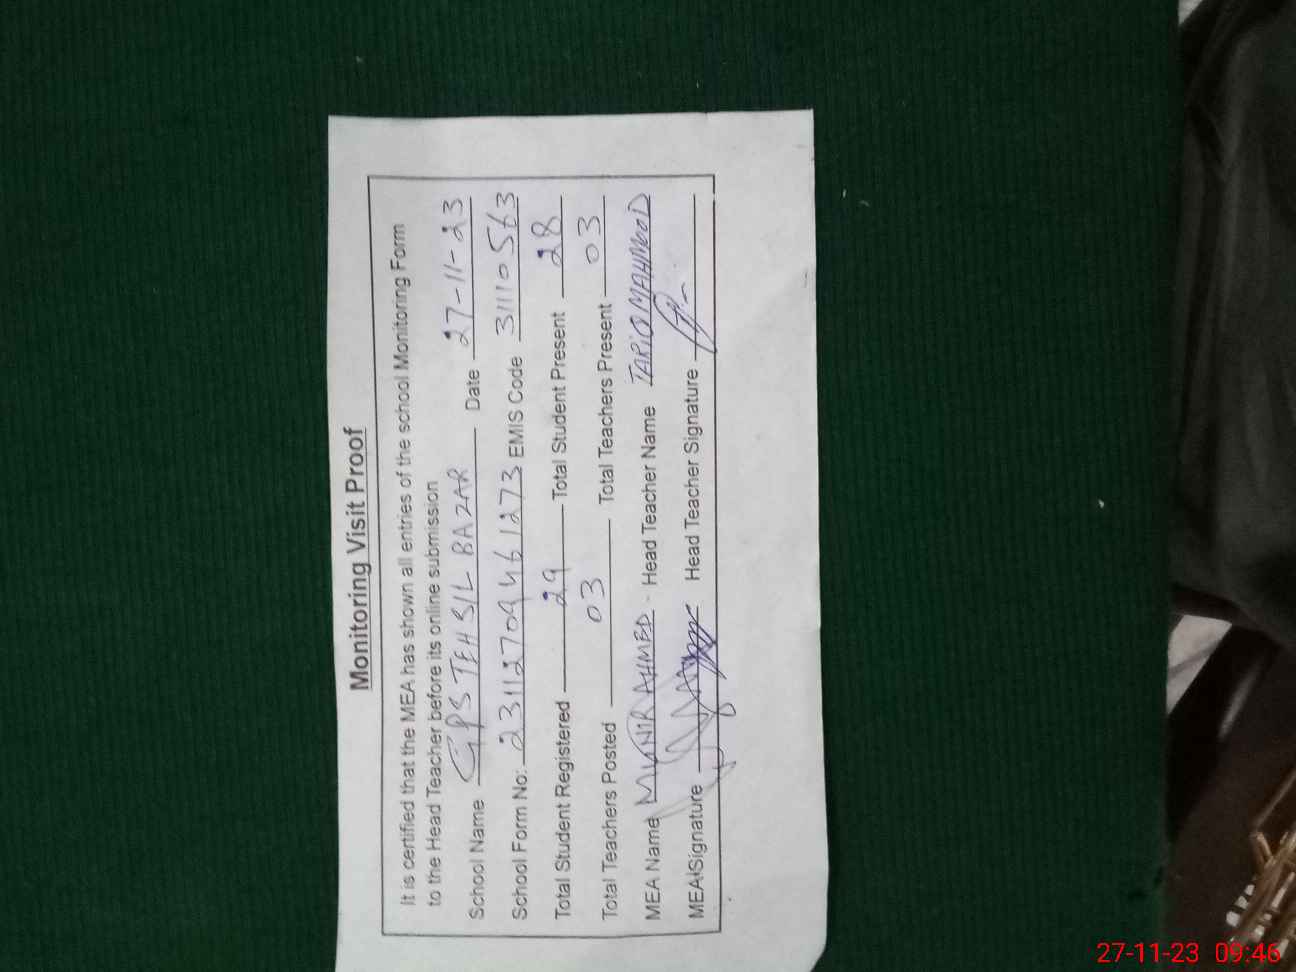 Monitoring Visit Proof
It is certified that the MEA has shown all entries of the school Monitoring Form
to the Head Teacher before its online submission
School Name GPS TEHSIL BAZAR Date 27-11-23
School Form No: 23112709461273 EMIS Code 31110563
Total Student Registered 29 Total Student Present 28
Total Teachers Posted 03 Total Teachers Present 03
MEA Name MUNIR AHMED - Head Teacher Name TARIQ MAHMOOD
MEA Signature Head Teacher Signature
27-11-23 09:46